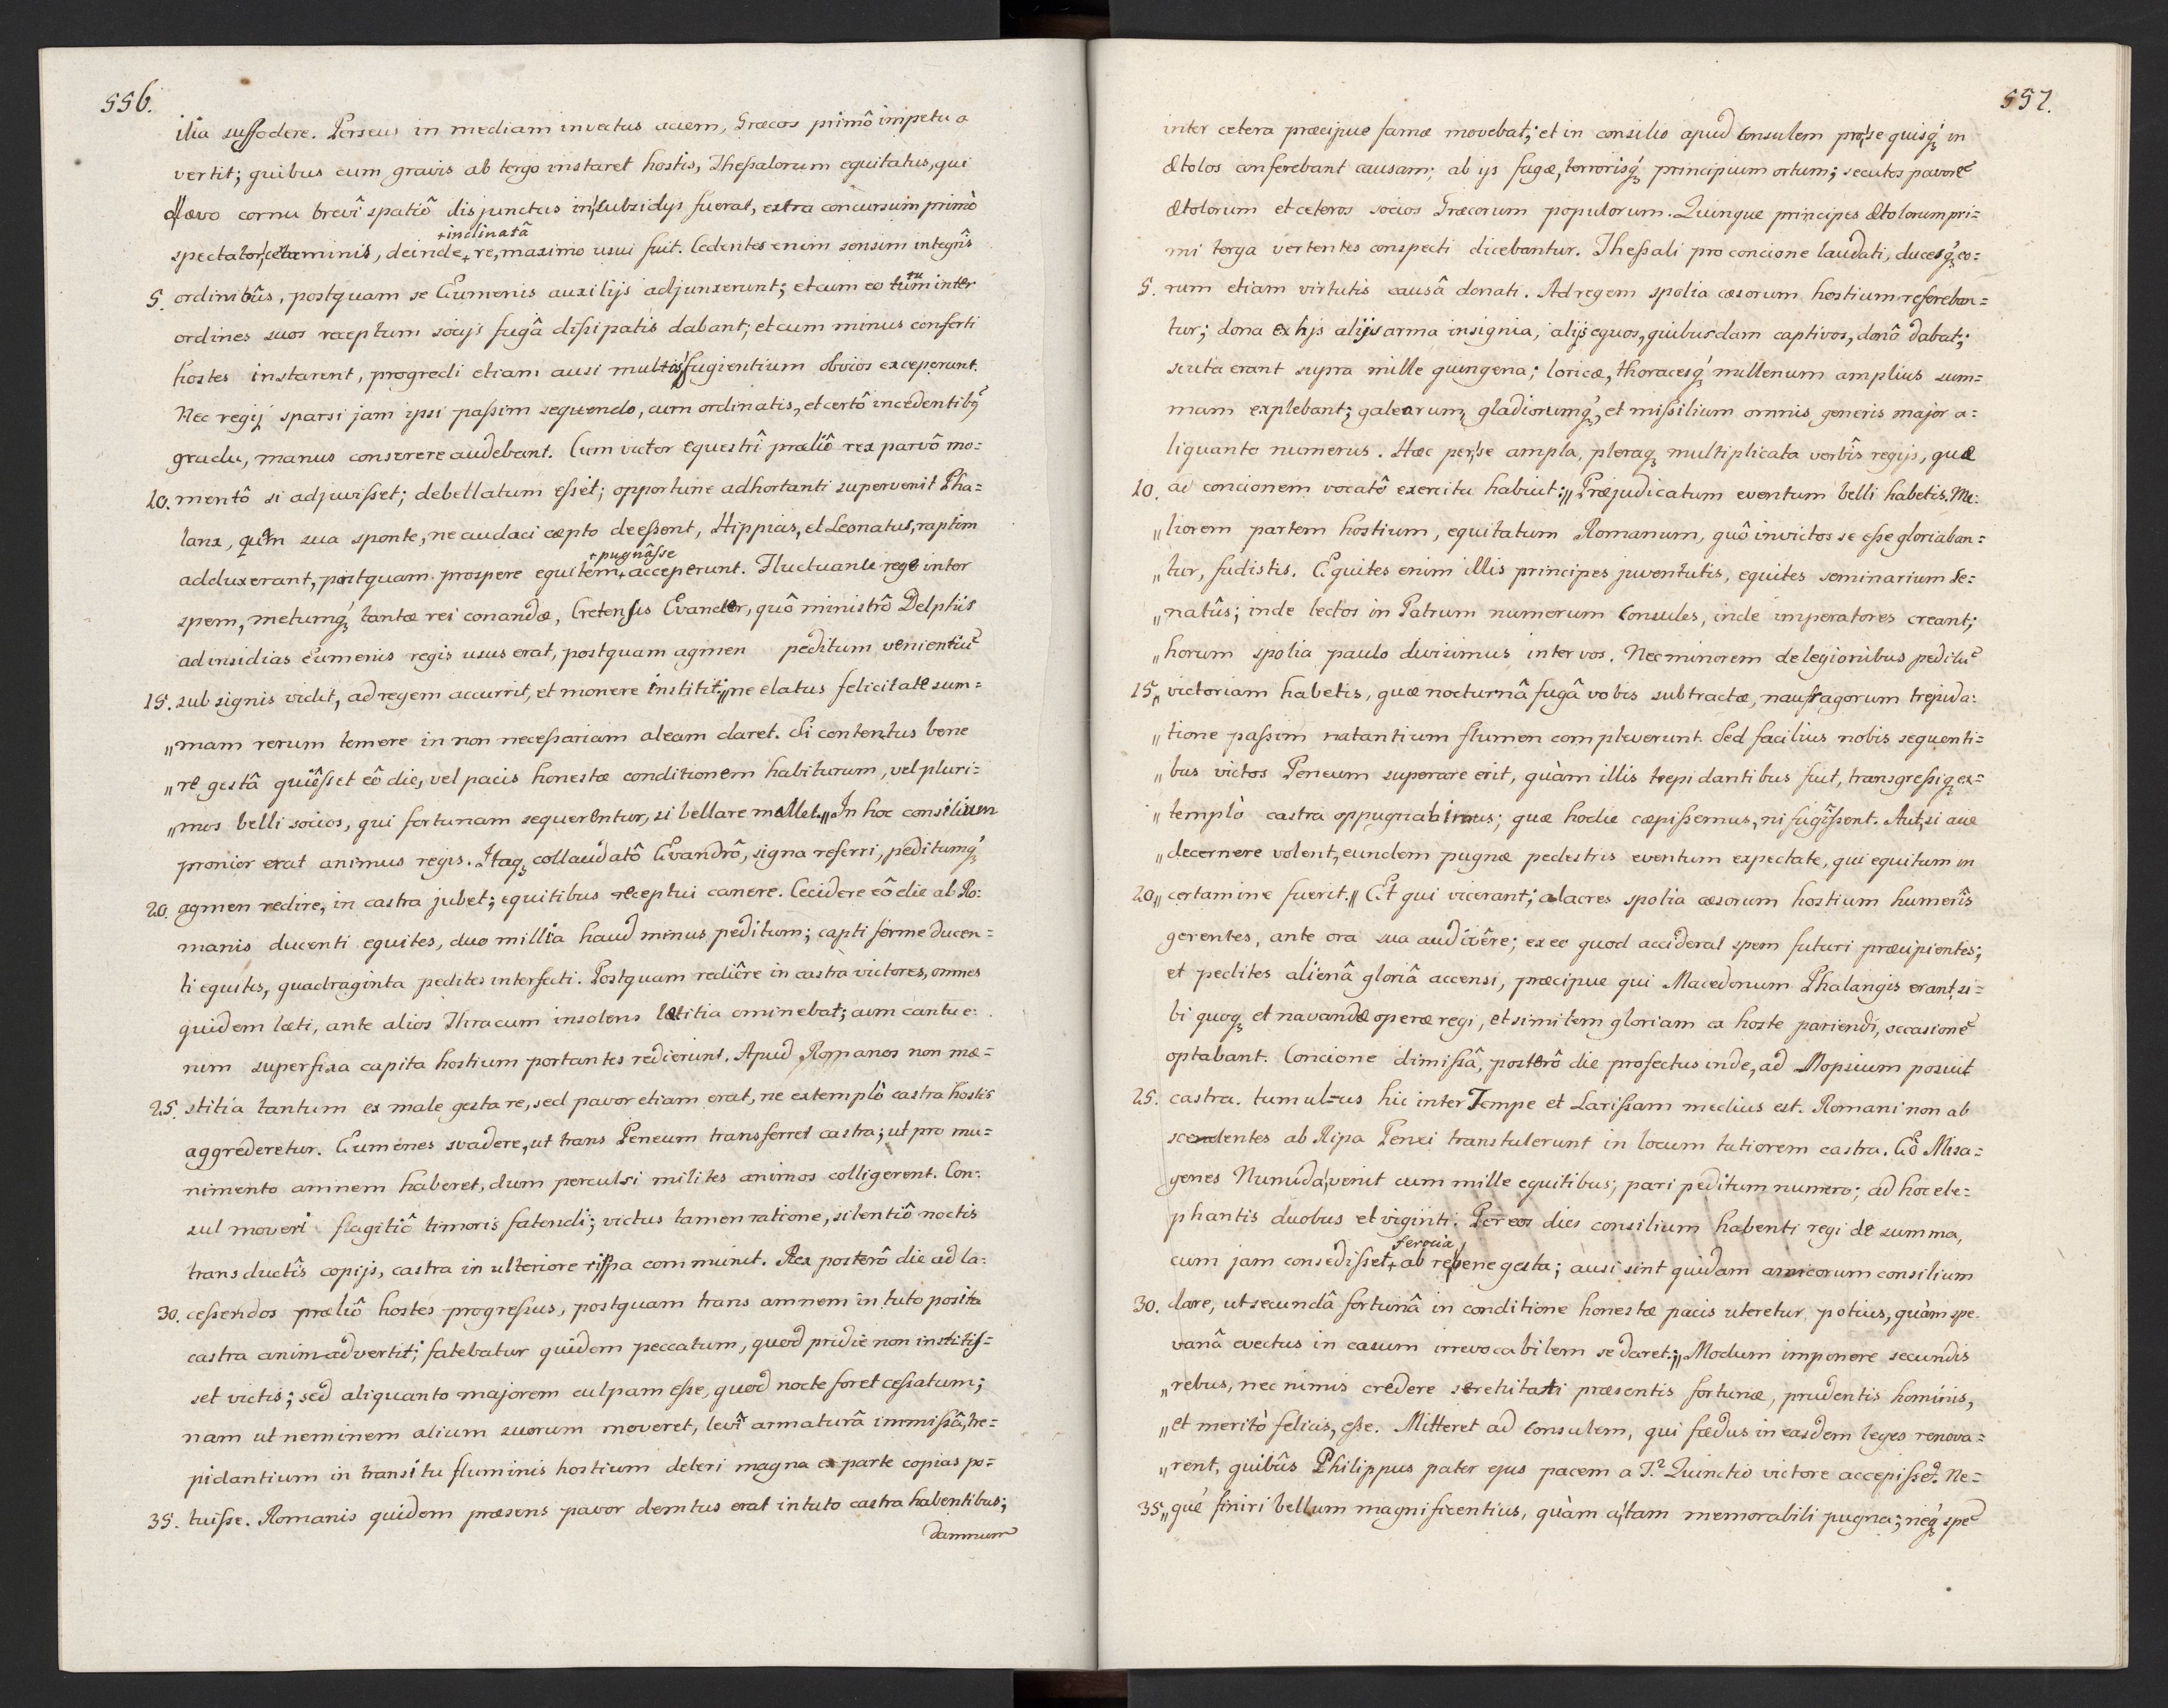 556.
ilia suffodere. Perseus in mediam invectus aciem, Græcos primô impetu a
vertit; quibus cum gravis ab tergo instaret hostis, Theſsalorum equitatus, qui
lævo cornu brevî spatiô disjunctus in subsidijs fuerat, extra concursum primò
+inclinatâ
spectator certaminis, deinde + re, maximo usui fuit. Cedentes enim sensim integrîs
5. ordinibûs, postquam se Eumenis auxilijs adjunxerunt; et cum eo tutum inter
ordines suos receptum socijs fugâ diſsipatis dabant; et cum minus conferti
hostes instarent, progredi etiam ausi multos fugientium obvios exceperunt.
Nec regij sparsi jam ipsi paſsim sequendo, cum ordinatis, et certô incedentibꝰ
gradu, manus conserere audebant. Cum victor equestrî præliô rex parvô mo=
10. mentô si adjuviſset; debellatum eſset; opportune adhortanti supervenit Pha=
lanx, quam sua sponte, ne audaci cœpto deeſsent, Hippias, et Leonatus, raptim
+ pugnâſse
adduxerant, postquam prospere equitem + acceperunt. Fluctuante rege inter
spem, metumq́ꝫ tantæ rei conandæ, Cretensis Evander, quô ministrô Delphis
ad insidias Eumenis regis usus erat, postquam agmen peditum venientiũ
15. sub signis vidit, ad regem accurrit, et monere institit: „ne elatus felicitate sum=
„mam rerum temere in non neceſsariam aleam daret. Si contentus bene
„re gestâ quiêſset eô die, vel pacis honestæ conditionem habiturum, vel pluri=
„mos belli socios, qui fortunam sequerentur, si bellare mallet.„ In hoc consilium
pronior erat animus regis. Itaqꝫ collaudatô Evandrô, signa referri, peditumq́ꝫ
20. agmen redire, in castra jubet; equitibus receptui canere. Cecidere eô die ab Ro=
manis ducenti equites, duo millia haud minus peditum; capti ferme ducen=
ti equites, quadraginta pedites interfecti. Postquam rediêre in castra victores, omnes
quidem læti, ante alios Thracum insolens lætitia eminebat; cum cantu e=
nim superfixa capita hostium portantes redierunt. Apud Romanos non mæ=
25. stitia tantum ex male gesta re, sed pavor etiam erat, ne extemplò castra hostis
aggrederetur. Eumenes svadere, ut trans Peneum transferret castra; ut pro mu=
nimento amnem haberet, dum perculsi milites animos colligerent. Con=
sul moveri flagitiô timoris fatendi; victus tamen ratione, silentiô noctis
transductîs copijs, castra in ulteriore ripa communit. Rex posterô die ad la=
30. ceſsendos præliô hostes progreſsus, postquam trans amnem in tuto posita
castra animadvertit; fatebatur quidem peccatum, quod pridie non institiſ=
set victis; sed aliquanto majorem culpam eſse, quod nocte foret ceſsatum;
nam ut neminem alium suorum moveret, levî armaturâ immiſsâ, tre=
pidantium in transitu fluminis hostium deleri magna ex parte copias po=
35. tuiſse. Romanis quidem præsens pavor demtus erat in tuto castra habentibus;
damnum
557.
inter cetera præcipue famæ movebat; et in consilio apud Consulem pro se quisq́ꝫ in
Ætolos conferebant causam; ab ijs fugæ, terrorisq́ꝫ principium ortum; secutos pavorẽ
Ætolorum et ceteros socios Græcorum populorum. Quinque principes Ætolorum pri=
mi terga vertentes conspecti dicebantur. Theſsali pro concione laudati, ducesq́ꝫ eo=
5. rum etiam virtutis causâ donati. Ad regem spolia cæsorum hostium refereban=
tur; dona ex hijs alijs arma insignia, alijs equos, quibusdam captivos, donô dabat;
scuta erant supra mille quingena; loricæ, thoracesq́ꝫ millenum amplius sum=
mam explebant; galearum, gladiorumq́ꝫ, et miſsilium omnis generis major a=
liquanto numerus. Hæc per se ampla, pleraqꝫ multiplicata verbîs regijs, quæ
10. ad concionem vocatô exercitu habuit: „Præjudicatum eventum belli habetis. Me=
„liorem partem hostium, equitatum Romanum, quô invictos se eſse gloriaban=
„tur, fudistis. Equites enim illis principes juventutis, equites seminarium Se=
„natûs; inde lectos in Patrum numerum Consules, inde imperatores creant;
„horum spolia paulo divisimus inter vos. Nec minorem de legionibus peditũ
15. „victoriam habetis, quæ nocturnâ fugâ vobis subtractæ, naufragorum trepida=
„tione paſsim natantium flumen compleverunt. Sed facilius nobis sequenti=
„bus victos Peneum superare erit, quàm illis trepidantibus fuit, transgreſsiqꝫ ex=
„templò castra oppugnabimus; quæ hodie cœpiſsemus, ni fugîſsent. Aut, si acie
„decernere volent, eundem pugnæ pedestris eventum expectate, qui equitum in
20. „certamine fuerit.„ Et qui vicerant; alacres spolia cæsorum hostium humerîs
gerentes, ante ora sua audivêre; ex eo quod acciderat spem futuri præcipientes;
et pedites alienâ gloriâ accensi, præcipue qui Macedonum Phalangis erant, si=
bi quoqꝫ et navandæ operæ regi, et similem gloriam ex hoste pariendi, occasionẽ
optabant. Concione dimiſsâ, posterô die profectus inde, ad Mopsium posuit
25. castra. tumulus hic inter Tempe et Lariſsam medius est. Romani non ab
scendentes ab Ripa Penei transtulerunt in locum tutiorem castra. Eô Misa=
genes Numida venit cum mille equitibus; pari peditum numero; ad hoc ele=
phantis duobus et viginti. Per eos dies consilium habenti regi de summa,
ferocia
cum jam consediſset + ab re bene gesta; ausi sint quidam amicorum consilium
30. dare, ut secundâ fortunâ in conditione honestæ pacis uteretur potius, quàm spe
vanâ evectus in casum irrevocabilem se daret: „Modum imponere secundis
„rebus, nec nimis credere serenitati præsentis fortunæ, prudentis hominis,
„et meritò felicis, eſse. Mitteret ad Consulem, qui fœdus in easdem leges renova=
„rent, quibûs Philippus pater ejus pacem a T.? Quinctio victore accepiſset. Ne=
35. „que finiri bellum magnificentius, quàm a tam memorabili pugna; neq́ꝫ spẽ